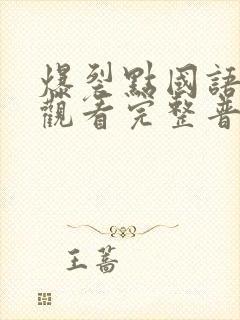 爆裂點國語
觀看完整普
王薔